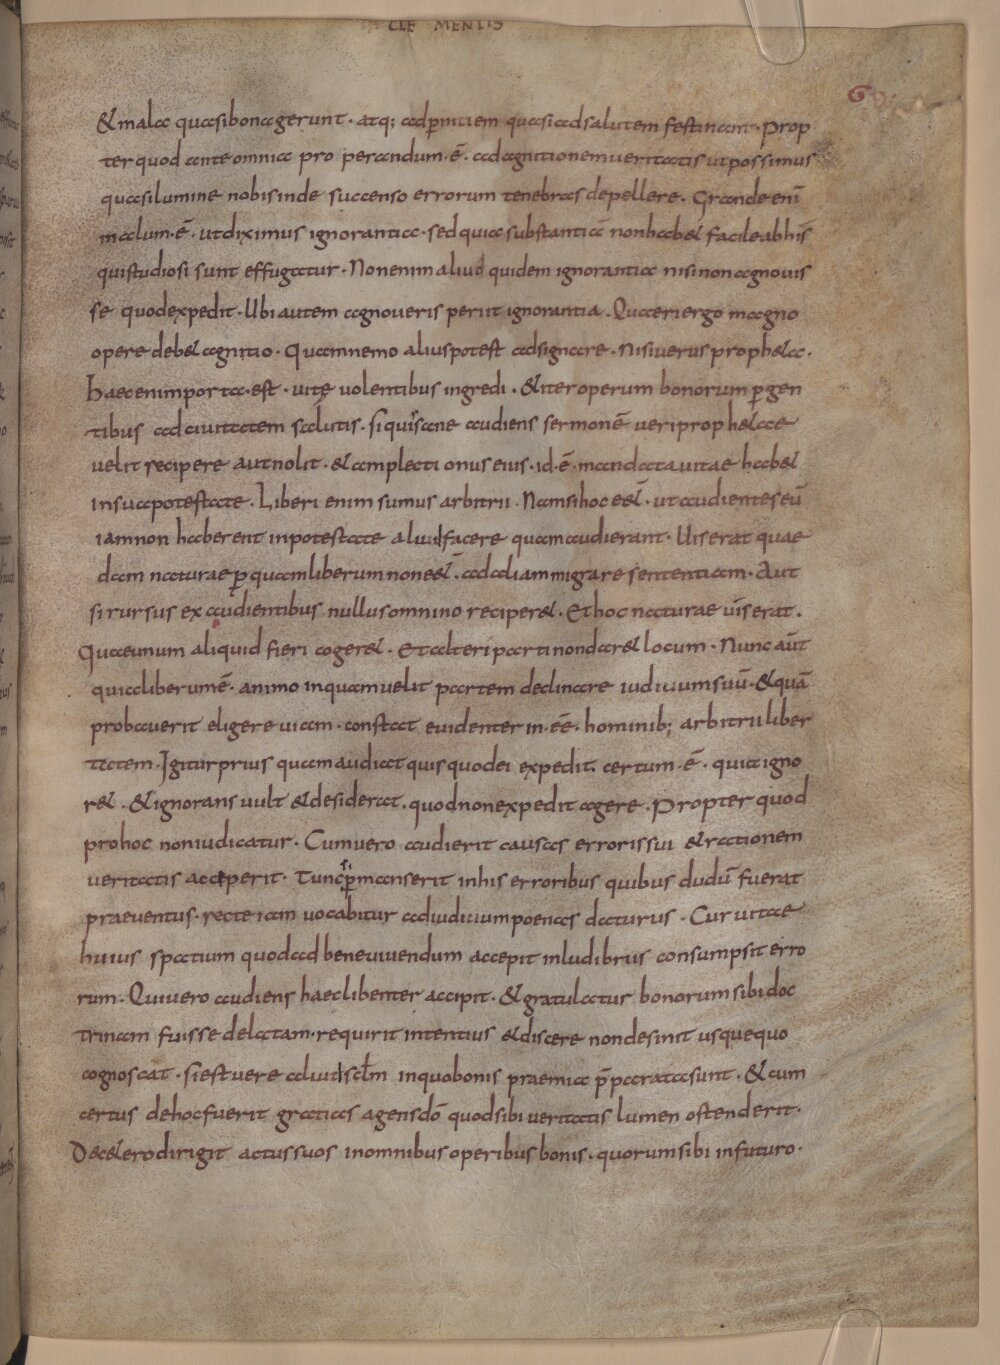 CLEMENTIS
69
& mala quasi bona gerunt · atq; ad pnitiem quasi ad salutem festinant · Prop
ter quod ante omnia pro perandum · ē · ad agnitionem ueritatis ut possimus
quasi lumine nobis inde succenso errorum tenebras depellere · Grande enī
malum · ē · ut diximus ignorantia · sed quia substantiā non hab& facile ab hīs
qui studiosi sunt effugatur · Non enim aliud quidem ignorantia nisi non agnouis
se quod expedit · Ubi autem agnoueris periit ignorantia · Quaeri ergo magno
opere deb& agnitio · Quam nemo alius potest adsignare · Nisi uerus proph&a ·
Haec enim porta · est · uitę uolentibus ingredi · & iter operum bonorum pgen
tibus ad ciuitatem salutis · si quis sane audiens sermonē ueri proph&ae
uelit recipere aut nolit · & amplecti onus eius · id · ē · mandata uitae hab&
in sua potestate · Liberi enim sumus arbitrii · Nam si hoc ee& · ut audientes eū
iam non haberent in potestate aliud facere quam audierant · Uis erat quae
dam naturae p quam liberum non ee& · ad aliam migrare sententiam · Aut
si rursus ex audientibus nullus omnino reciper& · Et hoc naturae uis erat ·
Quae unum aliquid fieri coger& · Et alteri parti non dar& locum · Nunc aūt
quia liberum ē · animo in quam uelit partem declinare iudiuium suū · & quā
probauerit eligere uiam · constat euidenter in · ēē · hominib; arbitrii liber
tatem · Igitur prius quam audiat quis quod ei expedit · certum · ē · quia igno
r& · & ignorans uult & desiderat · quod non expedit agere · Propter quod
pro hoc non iudicatur · Cum uero audierit causas erroris sui & rationem
ueritatis acceperit · Tunc si pmanserit in his erroribus quibus dudū fuerat
praeuentus · recte iam uocabitur ad iudiuium poenas daturus · Cur uitae
huius spatium quod ad bene uiuendum accepit in ludibriis consumpsit erro
rum · Qui uero audiens haec libenter accipit · & gratulatur bonorum sibi doc
trinam fuisse delatam · requirit intentius & discere non desinit usque quo
cognoscat · si est uere aliud sclm in quo bonis praemia p̄parata sunt · & cum
certus de hoc fuerit gratias agens dō quod sibi ueritatis lumen ostenderit ·
De c&ero dirigit actus suos in omnibus operibus bonis · quorum sibi in futuro ·